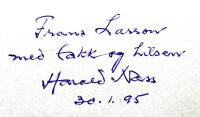 Frans Lasson
med takk og hilsen
Harald Næss
30.1.95